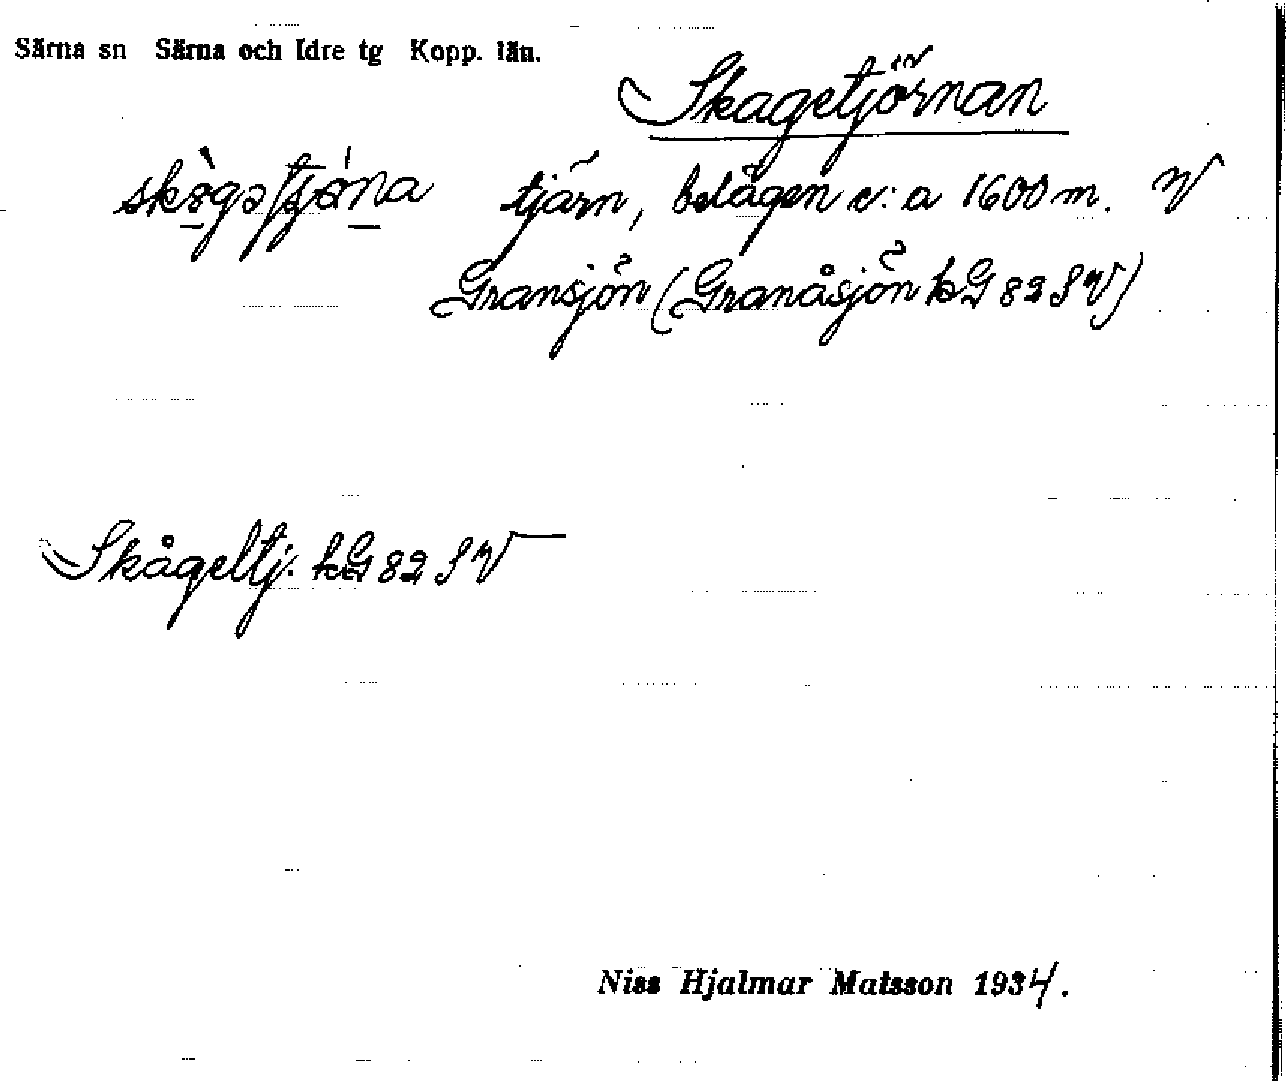 Särna sn Särna och Idre tg Kopp. län.
Skagetjörnan
tjärn, belägen c:a 1600 m. V
Gransjön (Granåsjön kG 82 SV)
Skågeltj. kG 82 SV
Niss Hjalmar Matsson 1934.